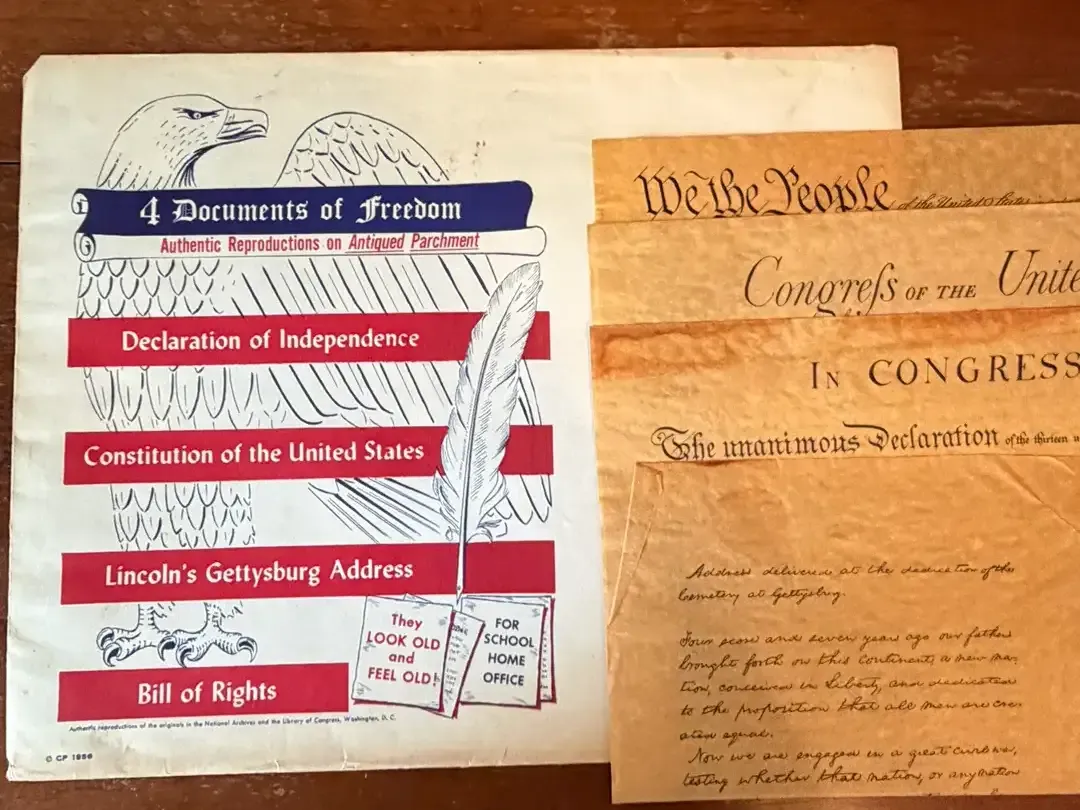 4 Documents of Freedom
Authentic Reproductions on Antiqued Parchment
Declaration of Independence
Constitution of the United States
Lincoln's Gettysburg Address
Bill of Rights
They
LOOK OLD
and
FEEL OLD!
FOR
SCHOOL
HOME
OFFICE
Authentic reproductions of the originals in the National Archives and the Library of Congress, Washington, D. C.
© CP 1956
We the People of the United States
Congreſs OF THE Unite
IN CONGRESS
The unanimous Declaration of the thirteen u
Address delivered at the dedication of the
Cemetery at Gettysburg.
Four score and seven years ago our fathers
brought forth on this continent, a new na-
tion, conceived in Liberty, and dedicated
to the proposition that all men are cre-
ated equal.
Now we are engaged in a great civil war,
testing whether that nation, or any nation